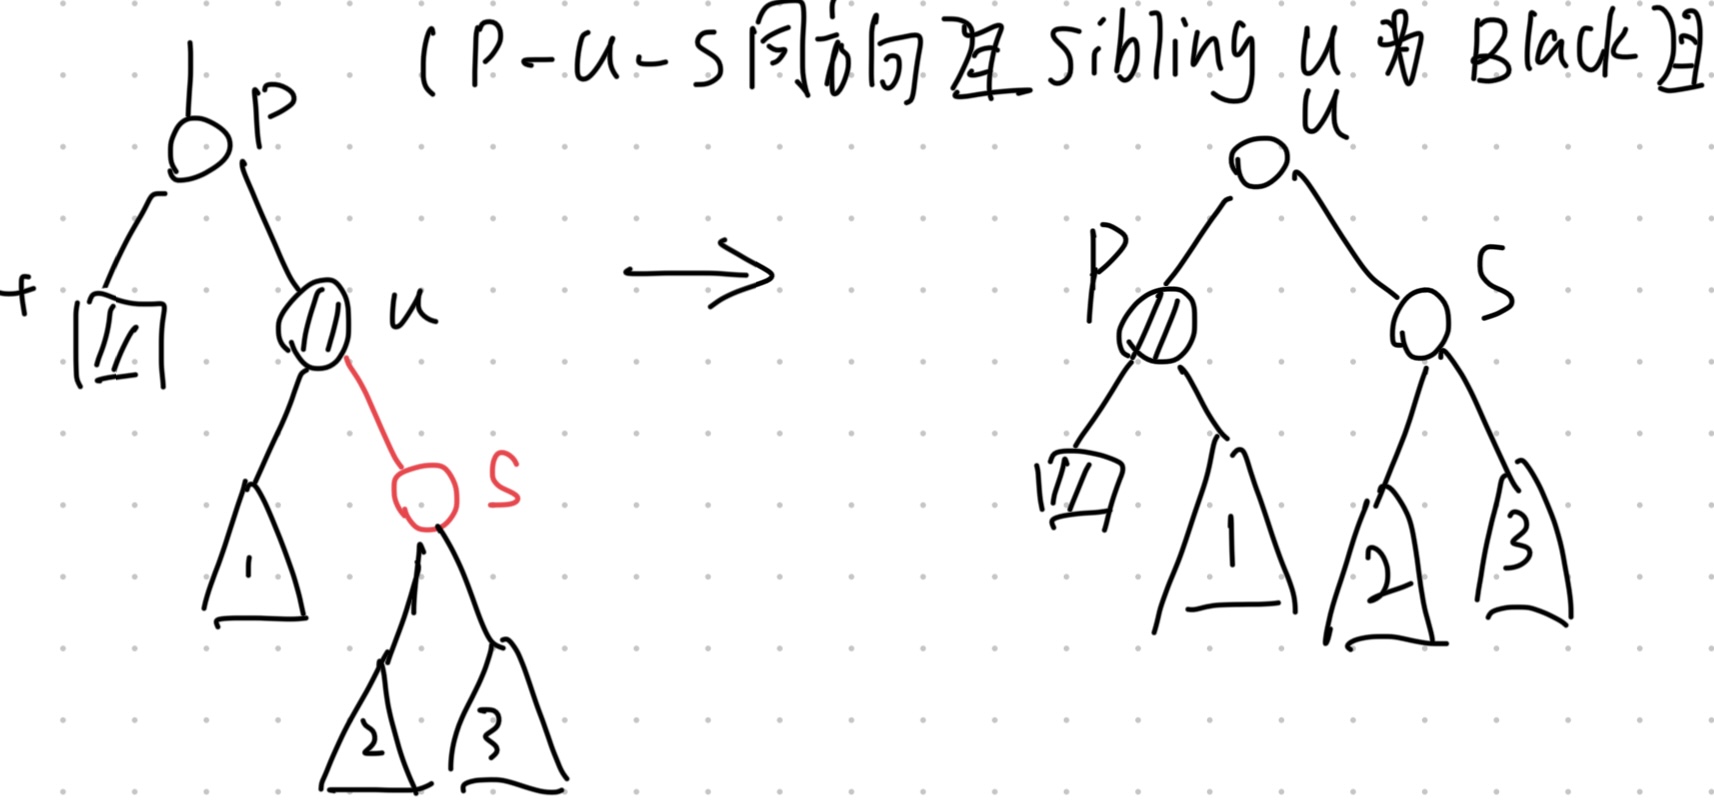 (P-U-S同方向且Sibling U为Black且
P
U
+
U
P
S
S
1
2
3
1
2
3